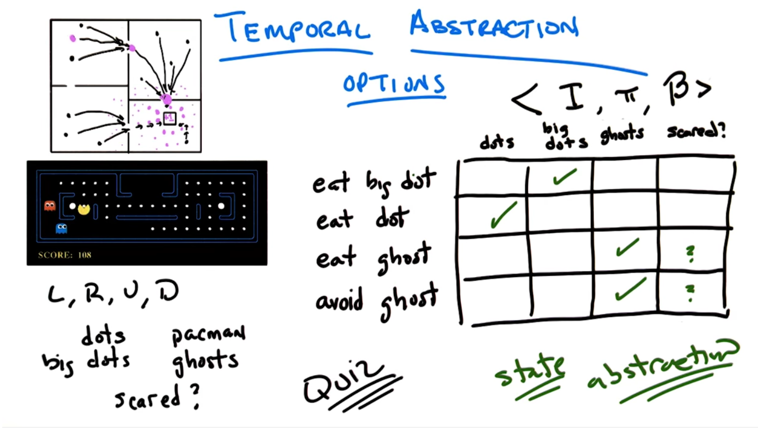 TEMPORAL ABSTRACTION
OPTIONS
< I, π, β >
dots big dots ghosts scared?
eat big dot ✓
eat dot ✓
eat ghost ✓ ?
avoid ghost ✓ ?
SCORE: 108
L, R, U, D
dots pacman
big dots ghosts
scared ?
Quiz
state abstraction